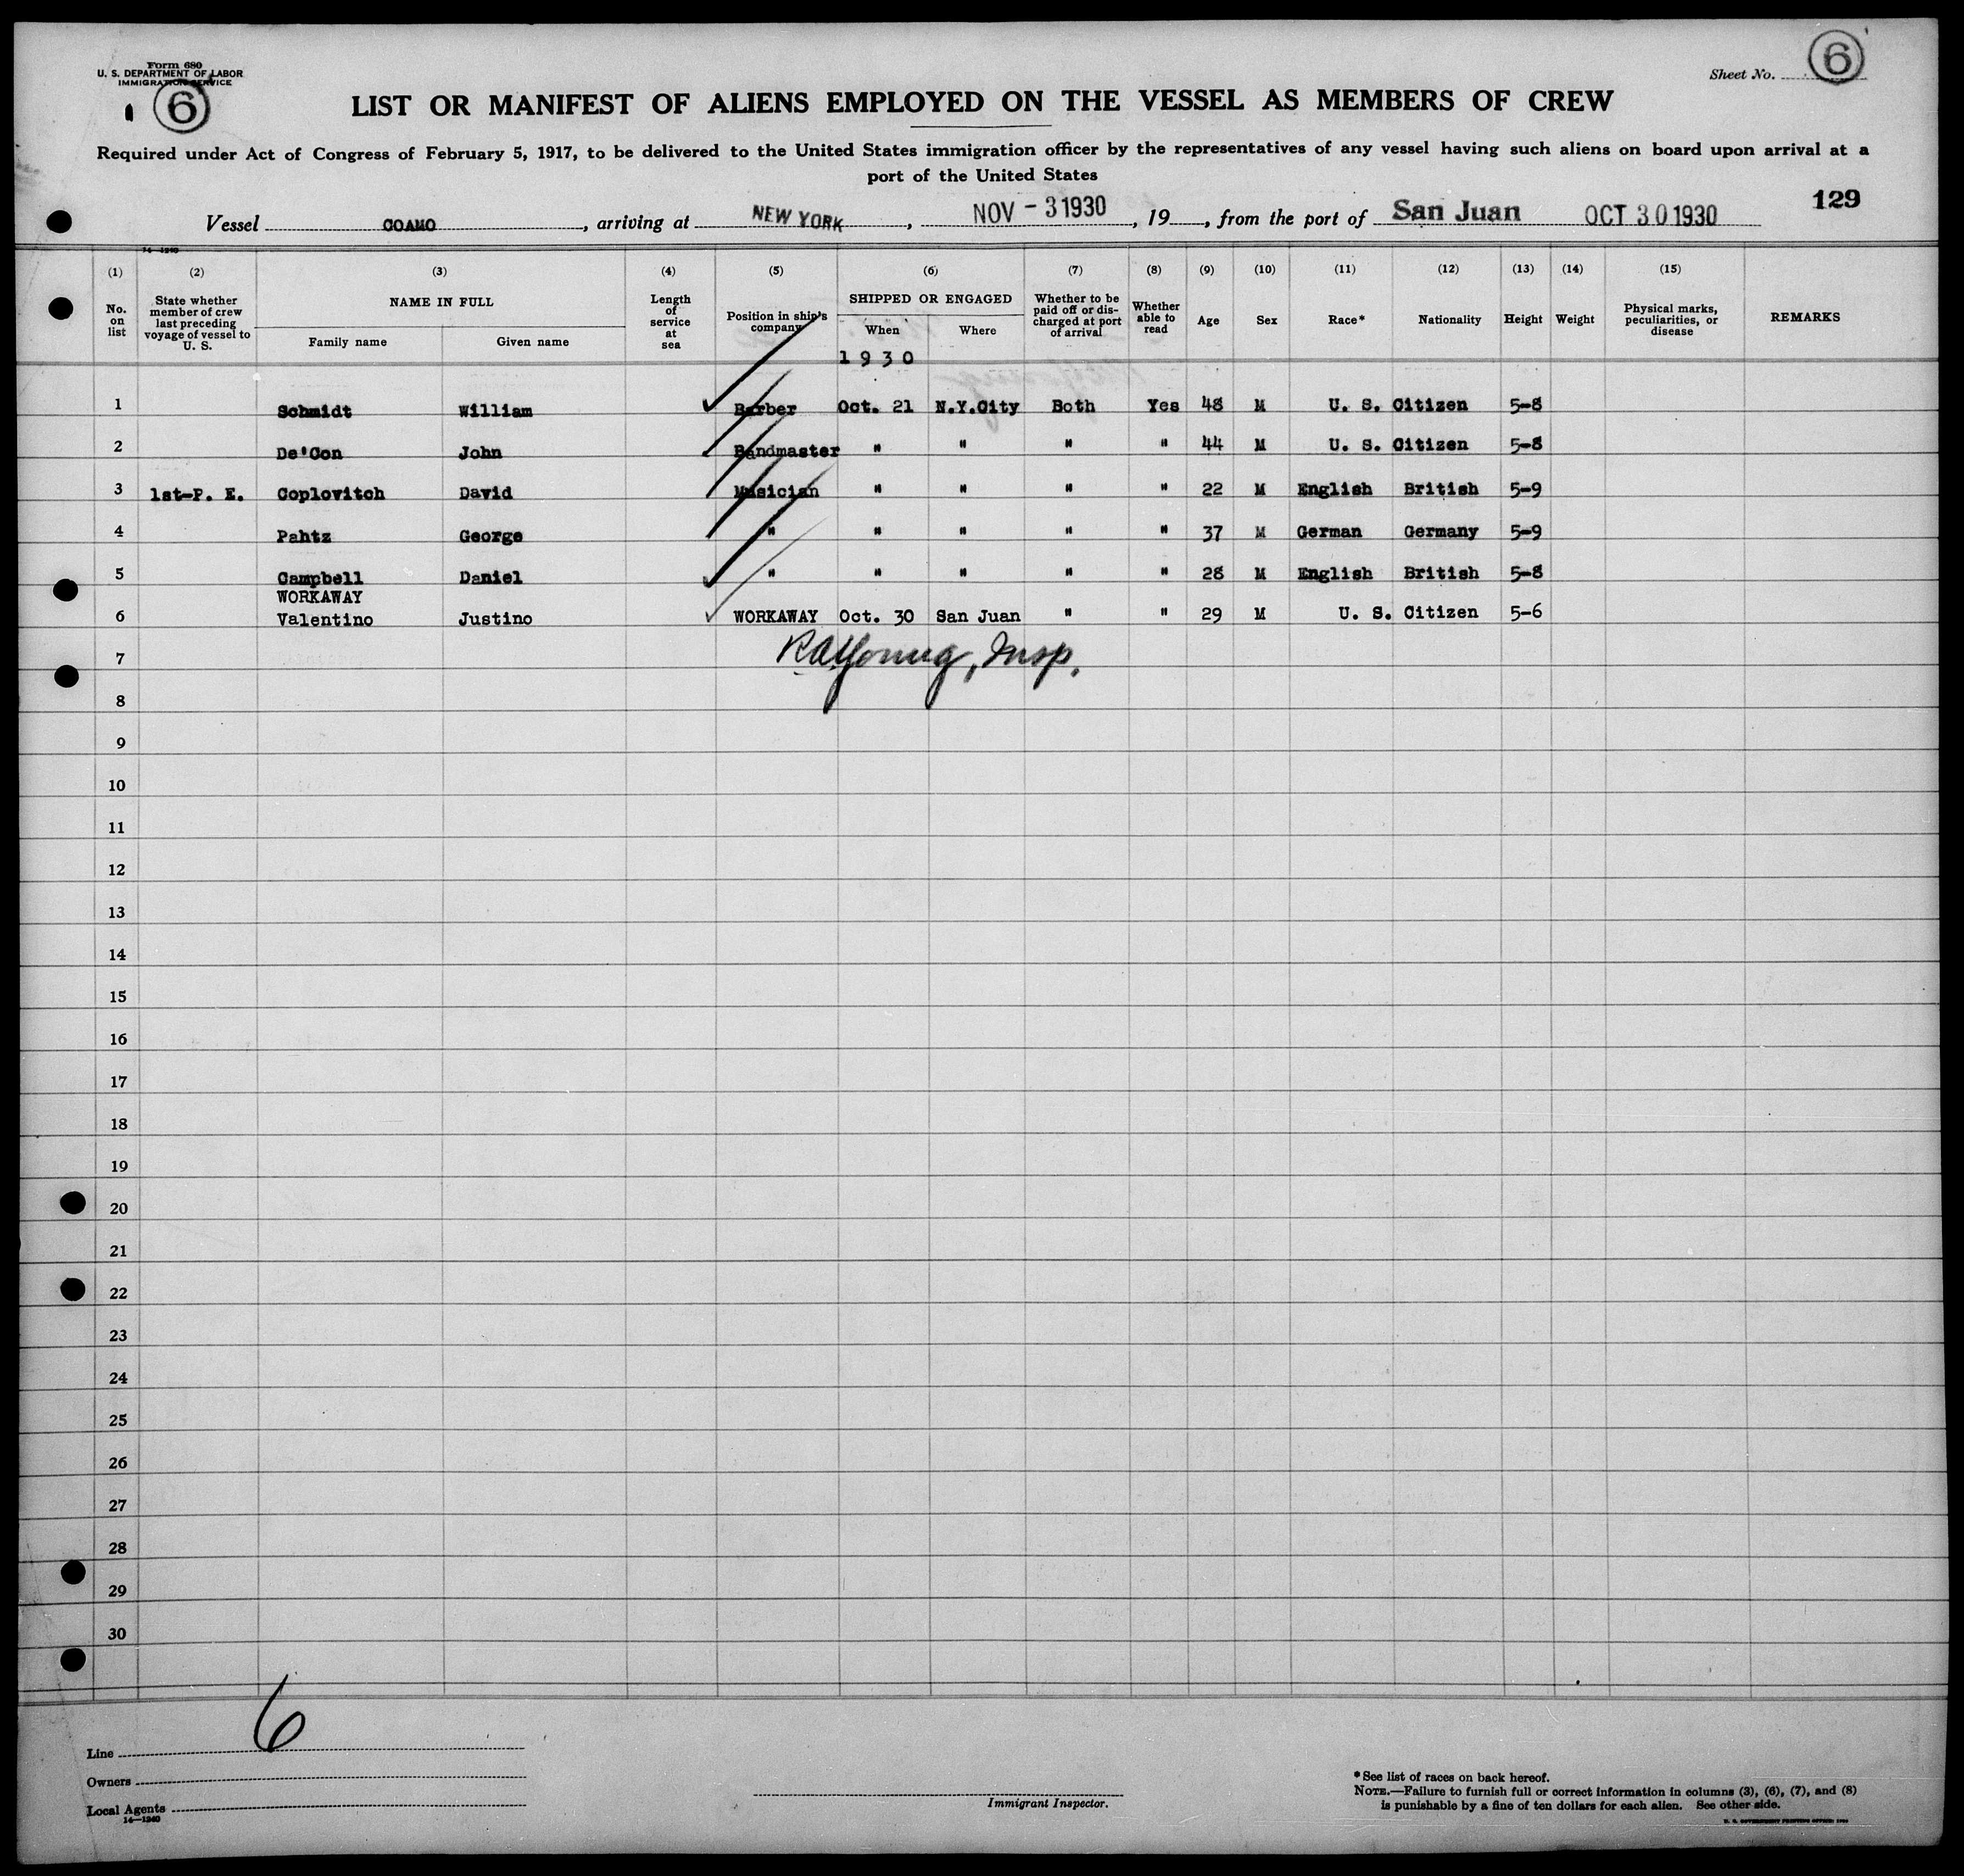 Form 680
U. S. DEPARTMENT OF LABOR
IMMIGRATION SERVICE
6
Sheet No. 6
LIST OR MANIFEST OF ALIENS EMPLOYED ON THE VESSEL AS MEMBERS OF CREW
Required under Act of Congress of February 5, 1917, to be delivered to the United States immigration officer by the representatives of any vessel having such aliens on board upon arrival at a
port of the United States
129
Vessel COAMO, arriving at NEW YORK, NOV - 3 1930, 19, from the port of San Juan OCT 30 1930
14-1240
(1) (2) (3) (4) (5) (6) (7) (8) (9) (10) (11) (12) (13) (14) (15)
No. on list State whether member of crew last preceding voyage of vessel to U. S. NAME IN FULL Family name Given name Length of service at sea Position in ship's company SHIPPED OR ENGAGED When Where Whether to be paid off or discharged at port of arrival Whether able to read Age Sex Race* Nationality Height Weight Physical marks, peculiarities, or disease REMARKS
1930
1 Schmidt William Barber Oct. 21 N.Y.City Both Yes 48 M U. S. Citizen 5-8
2 De'Con John Bandmaster " " " " 44 M U. S. Citizen 5-8
3 1st-P. E. Coplovitch David Musician " " " " 22 M English British 5-9
4 Pahtz George " " " " " 37 M German Germany 5-9
5 Campbell Daniel " " " " " 28 M English British 5-8
WORKAWAY
6 Valentino Justino WORKAWAY Oct. 30 San Juan " " 29 M U. S. Citizen 5-6
RAYoung, Insp.
7
8
9
10
11
12
13
14
15
16
17
18
19
20
21
22
23
24
25
26
27
28
29
30
6
Line
Owners
Local Agents
14-1240
Immigrant Inspector.
*See list of races on back hereof.
NOTE.—Failure to furnish full or correct information in columns (3), (6), (7), and (8)
is punishable by a fine of ten dollars for each alien. See other side.